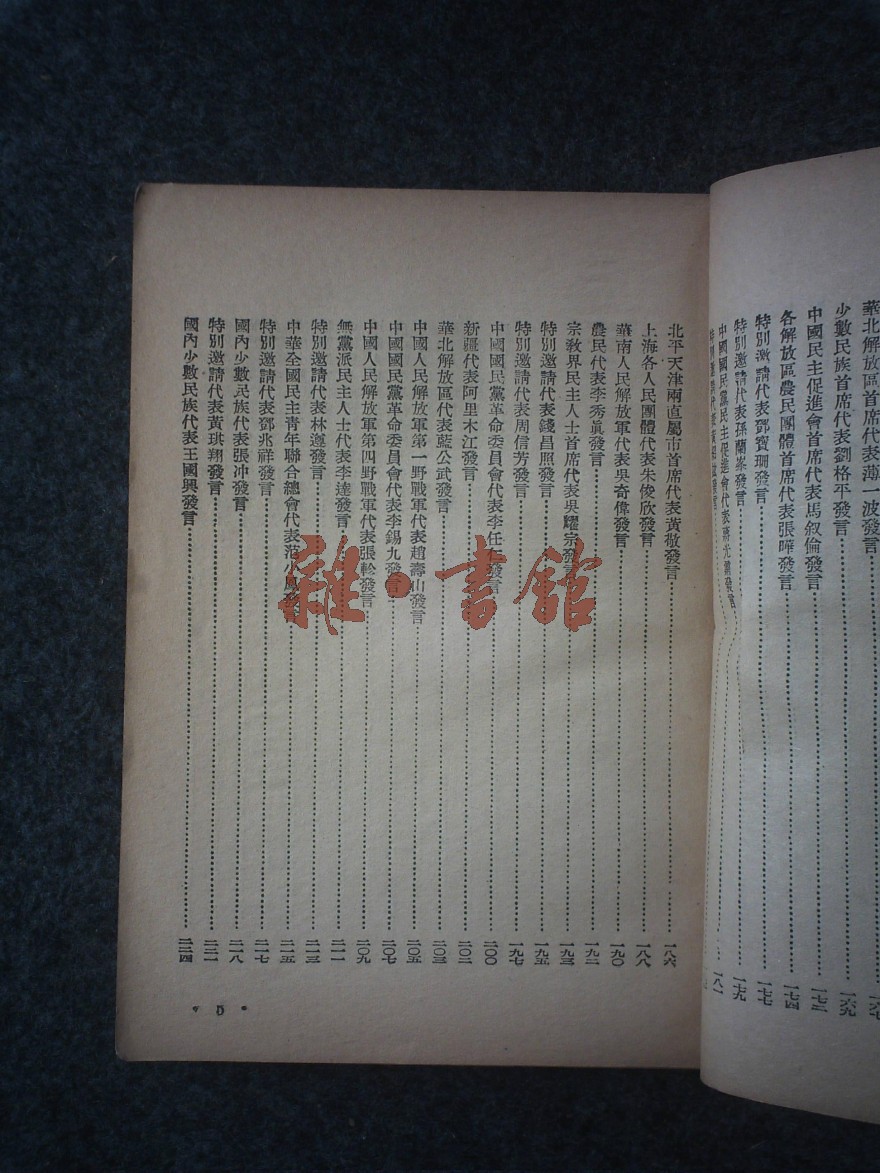 華北解放區首席代表薄一波發言
少數民族首席代表劉格平發言 一六九
中國民主促進會首席代表馬叙倫發言 一七二
各解放區農民團體首席代表張曄發言 一七四
特別邀請代表鄧寶珊發言 一七七
特別邀請代表孫蘭峯發言 一七九
中國國民黨民主促進會代表蔣光鼐發言 一八一
特別邀請代表
北平天津兩直屬市首席代表黃敬發言 一八六
上海各人民團體代表朱俊欣發言 一八八
華南人民解放軍代表吳奇偉發言 一九〇
農民代表李秀眞發言 一九二
宗教界民主人士首席代表吳耀宗發言 一九三
特別邀請代表錢昌照發言 一九五
特別邀請代表周信芳發言 一九七
中國國民黨革命委員會代表李任仁發言 二〇〇
新疆代表阿里木江發言 二〇二
華北解放區代表藍公武發言 二〇三
中國人民解放軍第一野戰軍代表趙壽山發言 二〇五
中國國民黨革命委員會代表李錫九發言 二〇七
中國人民解放軍第四野戰軍代表張軫發言 二〇九
無黨派民主人士代表李達發言 二一一
特別邀請代表林遵發言 二一三
中華全國民主青年聯合總會代表范小鳳發言 二一五
特別邀請代表鄧兆祥發言 二一七
國內少數民族代表張冲發言 二一八
特別邀請代表黃琪翔發言 二二一
國內少數民族代表王國興發言 二二四
• 5 •
雜·書館